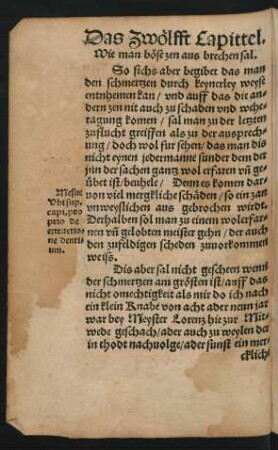 Das Zwölfft Capittel.
Wie man böse zen aus brechen sal.
So sichs aber begibet das man
den schmertzen durch keynerley weyse
entnhemen kan / vnd auff das die an-
dern zen nit auch zu schaden vnd wehe-
tagung komen / sal man zu der letzten
zuflucht greiffen als zu der ausprech-
ung / doch wol für sehen / das man dis
nicht eynen jedermanne sunder dem der
jnn der sachen gantz wol erfaren vñ ge-
übet ist / beuhele / Denn es komen dar-
von viel mergkliche schäden / so ein zan
vnweyslichen aus gebrochen wirdt
Derhalben sol man zu einem wolerfar-
nen vñ gelobten meister gehn / der auch
den zufeldigen scheden zuuorkommen
weiß.
Mesue
Vbi sup.
capi. pro
prio de
extractio
ne dentiu
um.
Dis aber sal nicht gescheen wenn
der schmertzen am grösten ist / auff das
nicht onrechtigkeit als mir do ich nach
ein klein Knabe von acht ader neun jar
war bey Meyster Lorenz hie zur Mit-
wede geschach / ader auch zu weylen der
in thodt nachuolge / ader sunst ein mer-
cklich